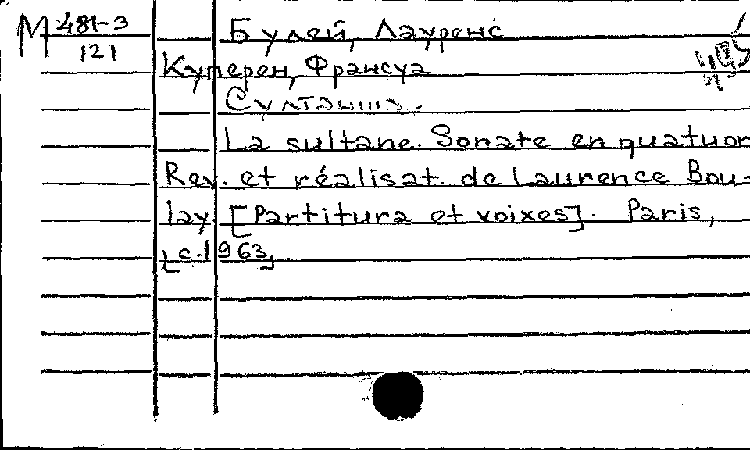 М 481-3
121
Булей, Лауренс
Куперен, Франсуа
Султанша.
La sultane. Sonate en quatuor
Rev. et réalisat. de Laurence Bou-
lay. [Partitura et voixes]. Paris,
[c.1963]